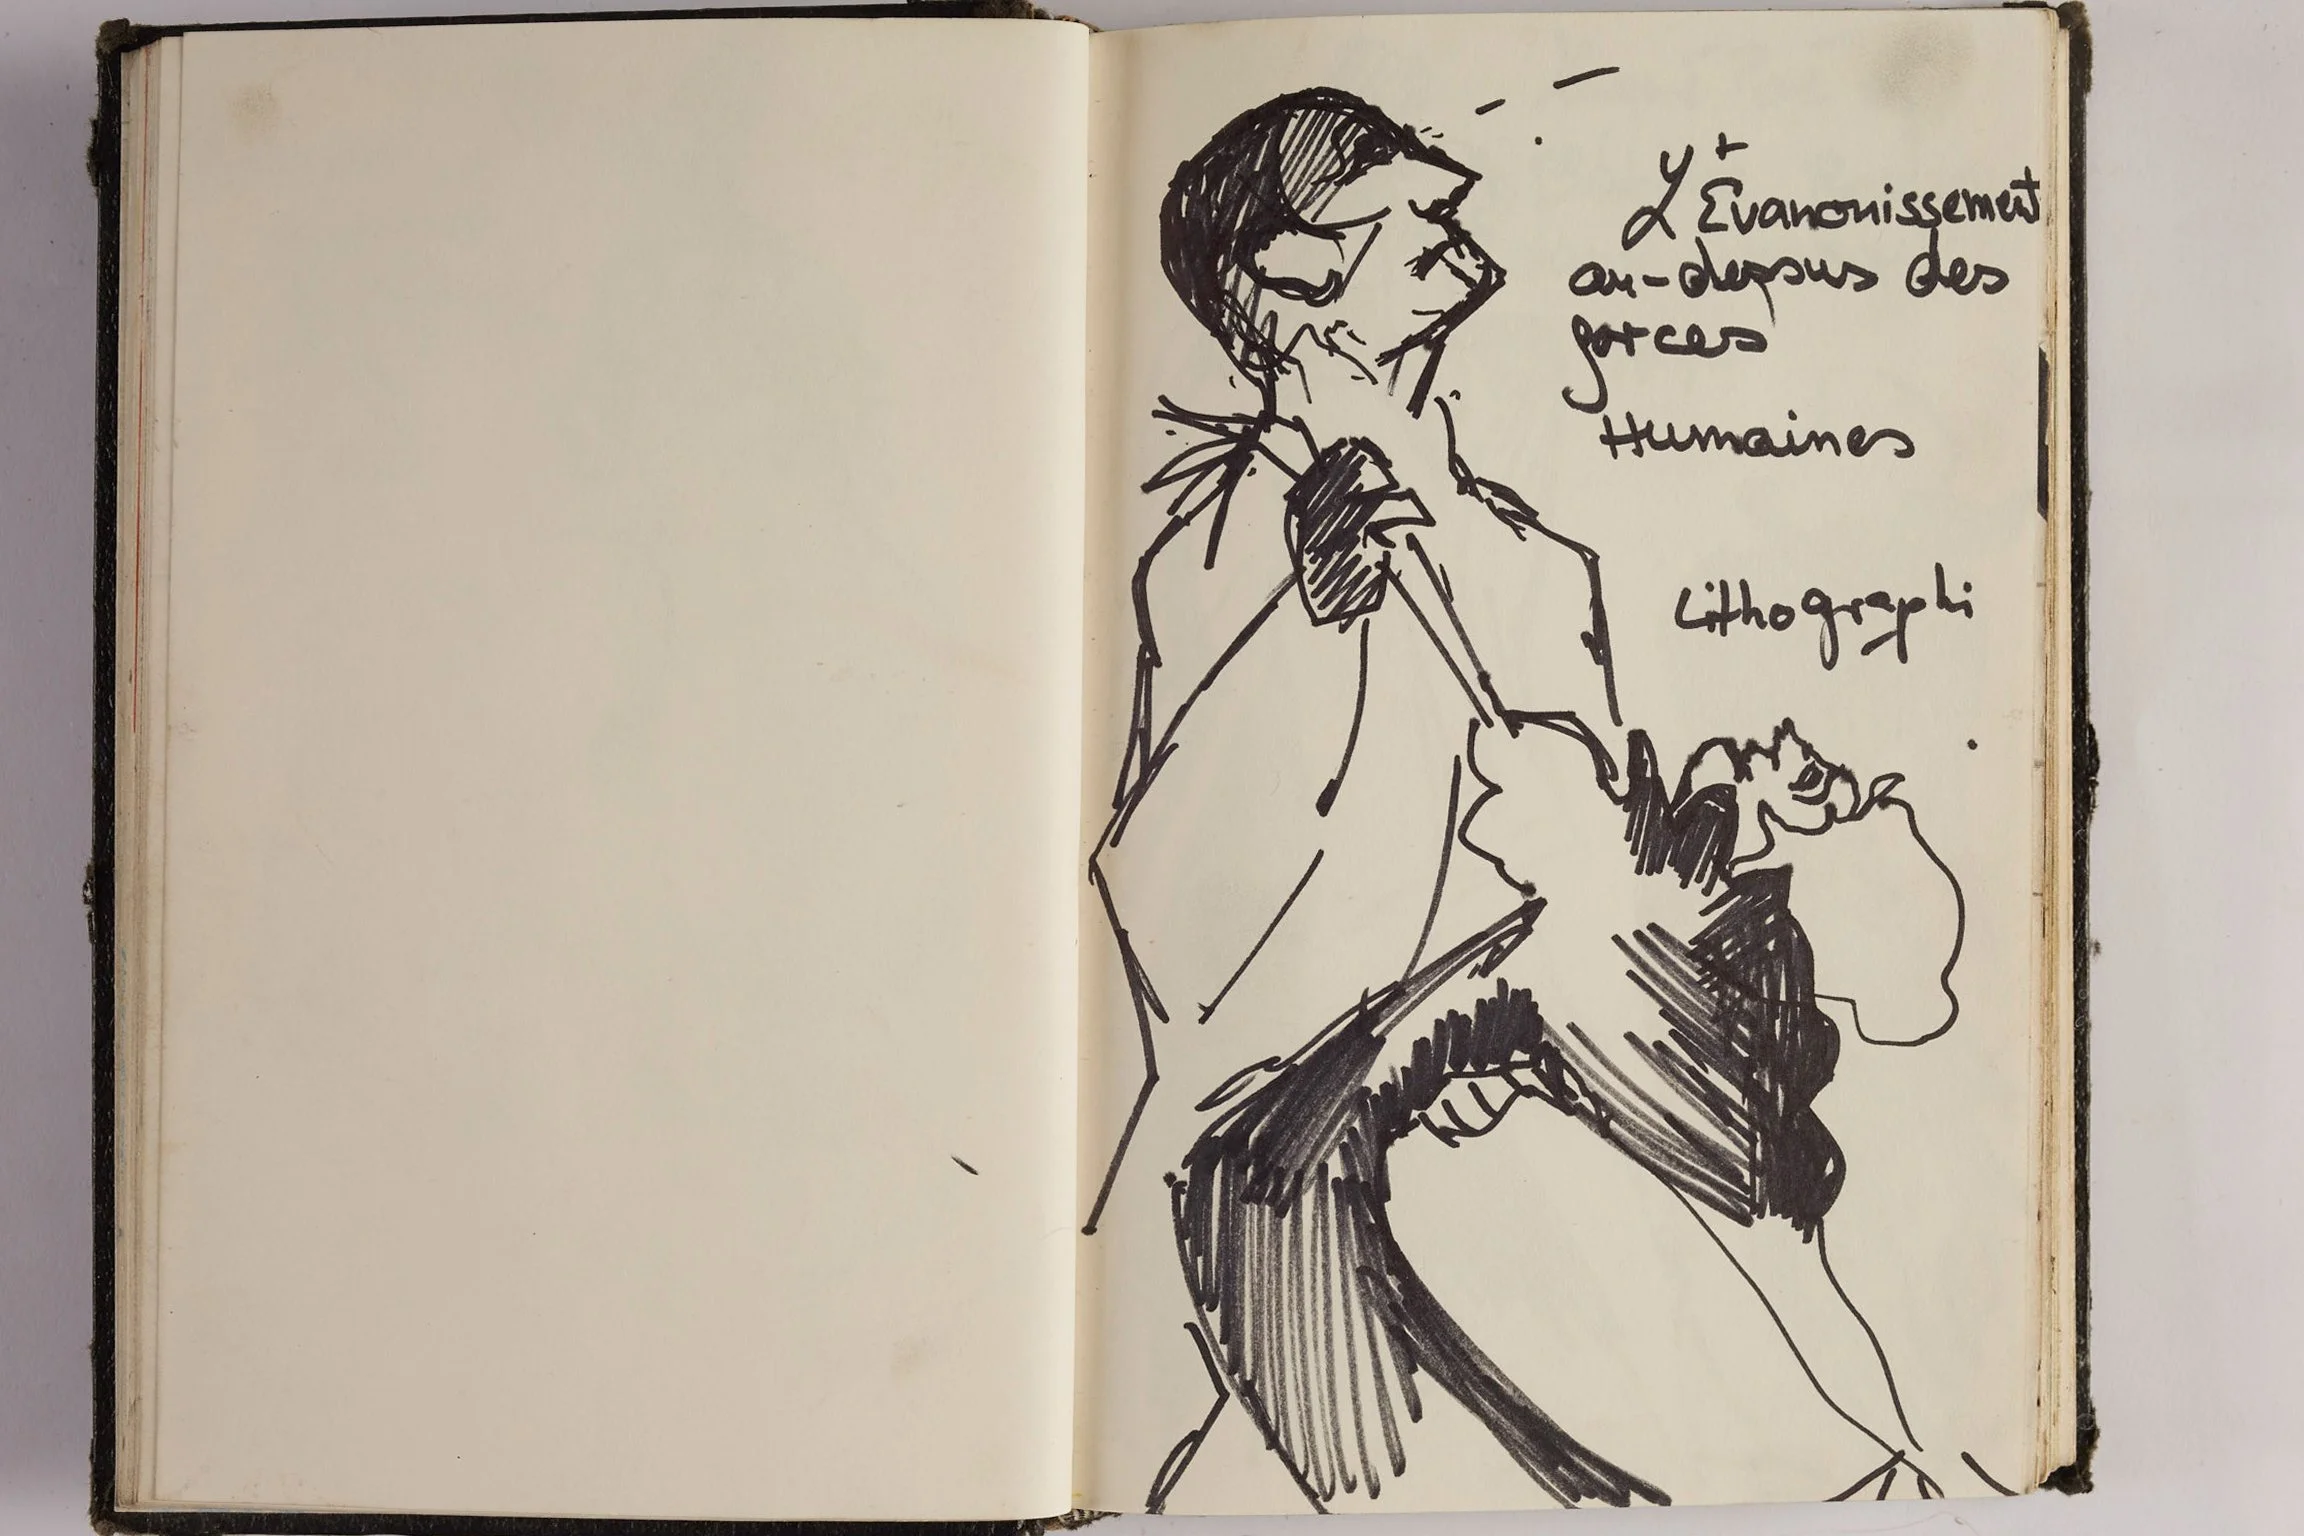 L'Evanouissement
au-dessus des
forces
Humaines
Lithographi